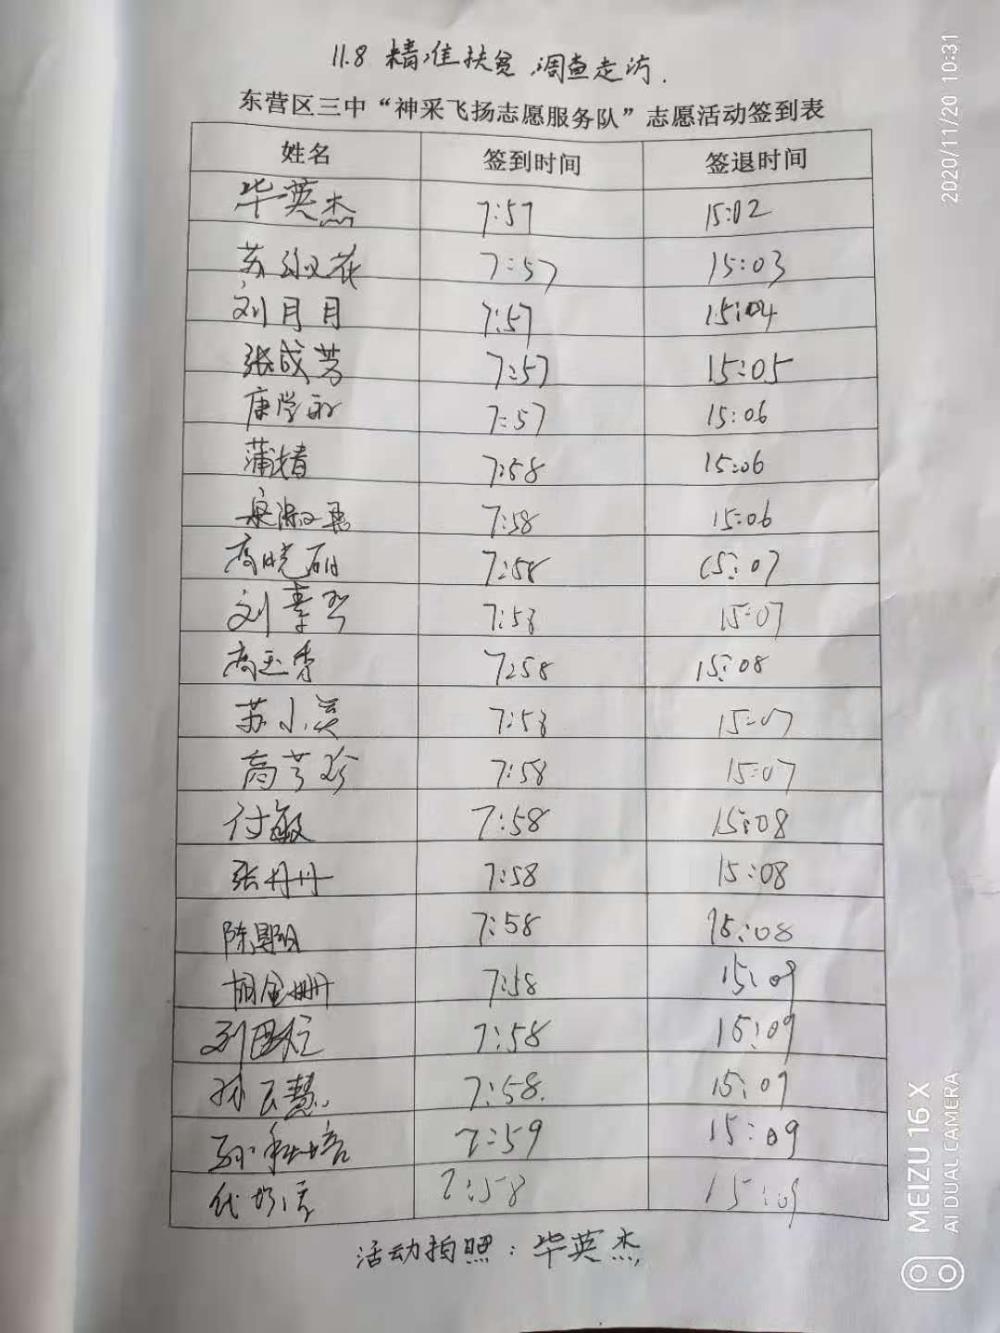 11.8 精准扶贫 调查走访.
东营区三中“神采飞扬志愿服务队”志愿活动签到表
姓名 签到时间 签退时间
毕英杰 7:57 15:02
苏淑花 7:57 15:03
刘月月 7:57 15:04
张成芳 7:57 15:05
康学 7:57 15:06
蒲婧 7:58 15:06
7:58 15:06
高晓丽 7:58 15:07
刘素 7:58 15:07
高玉香 7:58 15:08
苏小美 7:58 15:07
高芳珍 7:58 15:07
付敏 7:58 15:08
张丹丹 7:58 15:08
陈 7:58 15:08
胡金珊 7:58 15:09
刘 7:58 15:09
孙云慧 7:58. 15:09
孙 培 7:59 15:09
代 7:58 15:09
活动拍照：毕英杰
2020/11/20 10:31
MEIZU 16 X
AI DUAL CAMERA